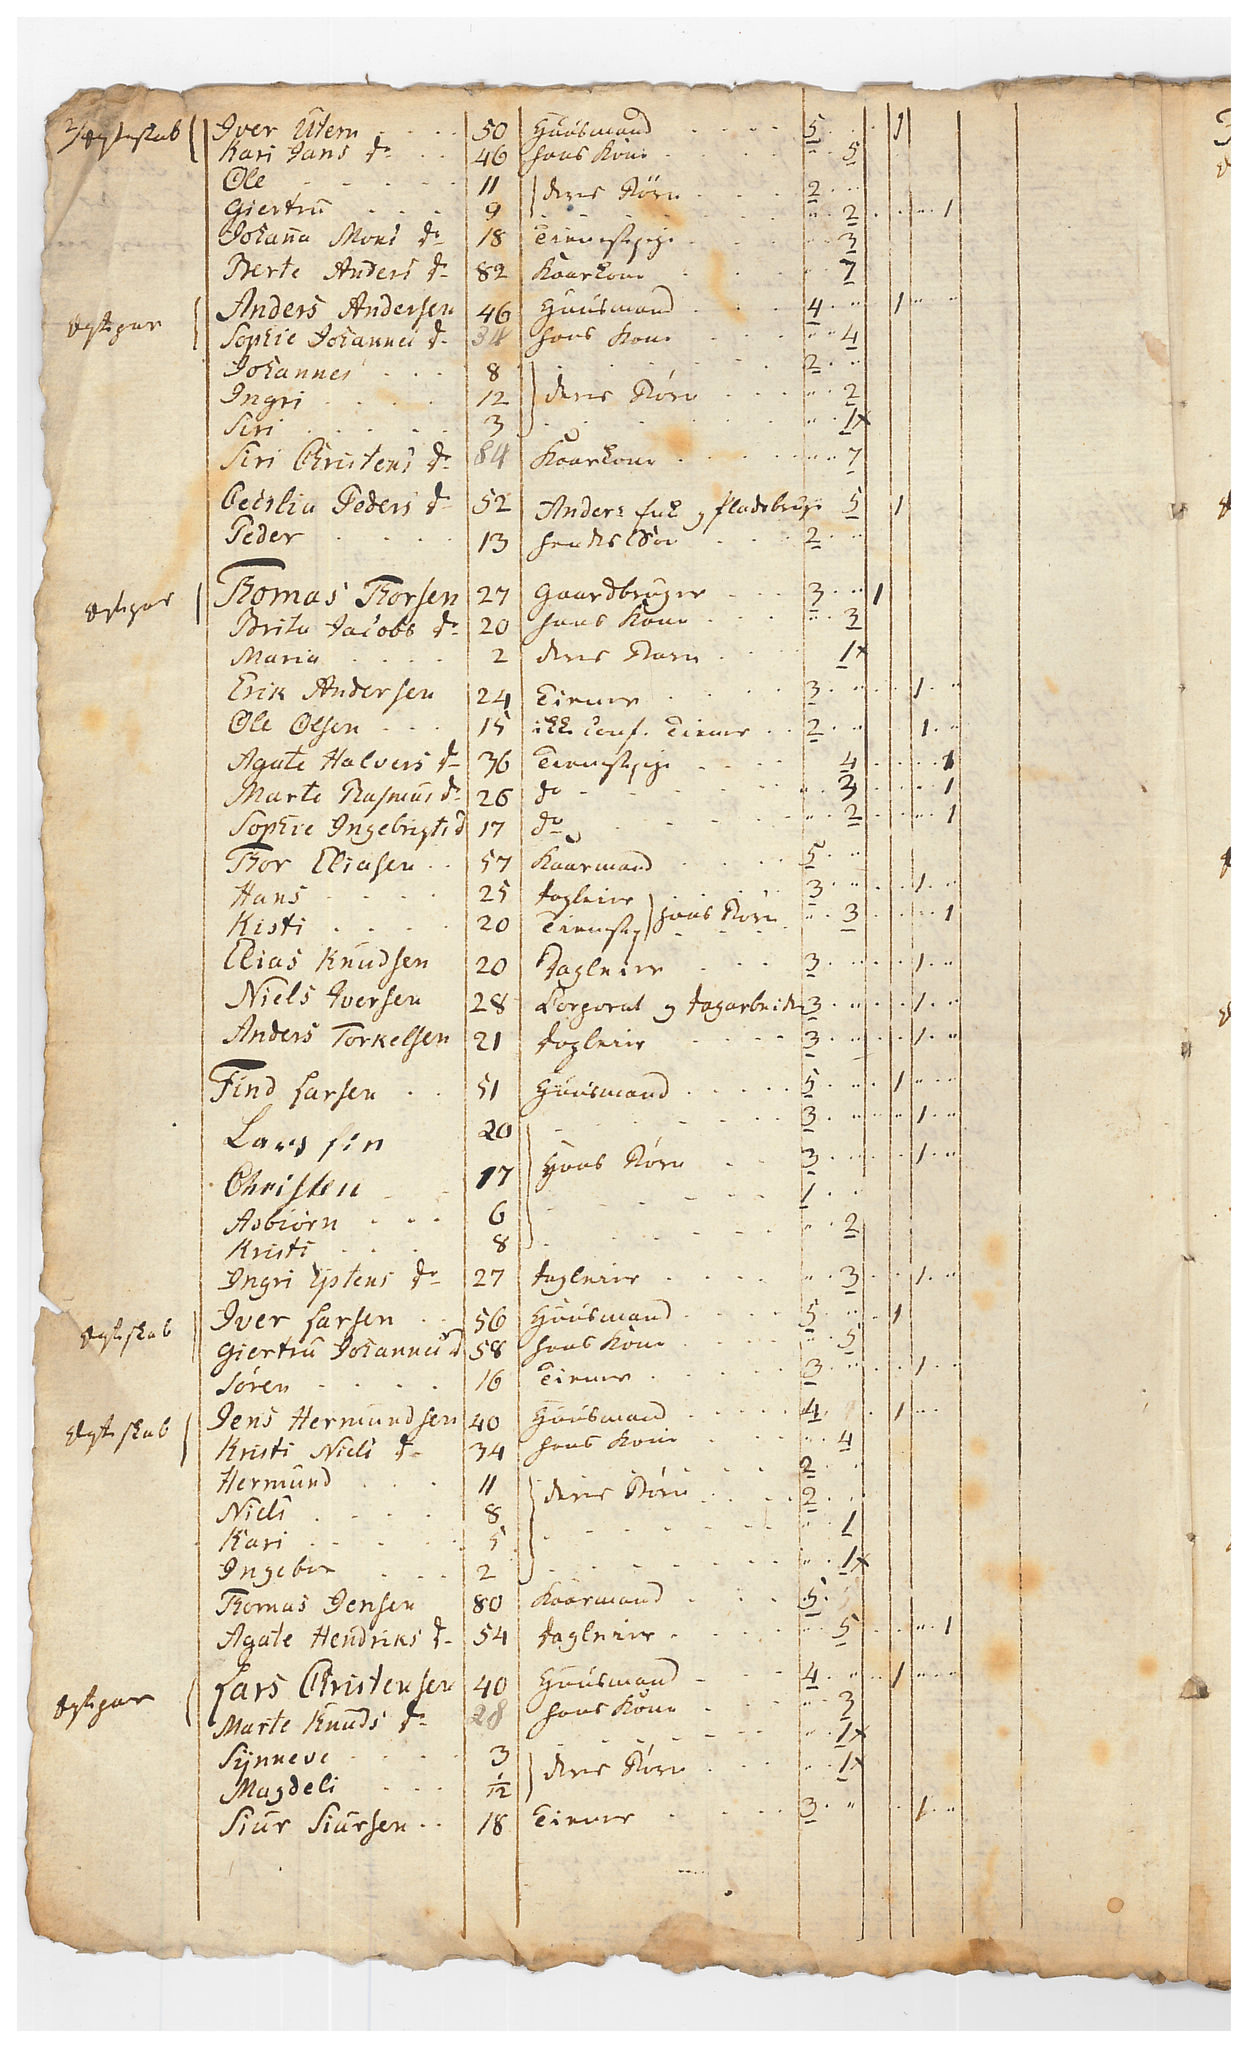 2/ Ægteskab Iver Utern 50 Huusmand 5 1
Kari Jans dr 46 hans Kone 5
Ole 11 deres Börn 2
Giertru 9 2 1
Johanna Mons dr 18 Tienestepige 3
Berte Anders dr 82 Kaarkone 7
Ægtepar Anders Andersen 46 Huusmand 4 1
Sophie Johannes dr 34 hans Kone 4
Johannes 8 2
Ingri 12 deres Börn 2
Siri 3 1x
Siri Christens dr 84 Kaarkone 7
Cecilia Peders dr 52 Anders Enk og pladsbruger 5 1
Peder 13 hendes Sön 2
Ægtepar Thomas Thorsen 27 Gaardbruger 3 1
Brita Jacobs dr 20 hans Kone 3
Maria 2 deres Barn 1x
Erik Andersen 24 Tiener 3 1
Ole Olsen 15 ikke conf. Tiener 2 1
Agate Halvers dr 36 Tienestepige 4 1
Marte Rasmus dr 26 do 3 1
Sophie Ingebrigts d 17 do 2 1
Thor Eliasen 57 Kaarmand 5
Hans 25 dagleier 3 1
Kisti 20 Tienestep hans Börn 3 1
Elias Knudsen 20 Dagleier 3 1
Niels Iversen 28 Corporal og dagarbeider 3 1
Anders Torkelsen 21 dagleier 3 1
Find Larsen 51 Huusmand 5 1
Lars fin 20 3 1
Christen 17 Hans Börn 3 1
Asbiörn 6 1
Kristi 8 2
Ingri Ejstens dr 27 dagleier 3 1
Ægteskab Iver Larsen 56 Huusmand 5 1
Giertru Johannes d 58 hans Kone 5
Sören 16 Tiener 3 1
Ægteskab Jens Hermundsen 40 Huusmand 4 1
Kristi Niels dr 34 hans Kone 4
Hermund 11 2
Niels 8 deres Börn 2
Kari 5 1
Ingebor 2 1x
Thomas Jensen 80 Kaarmand 5
Agate Hendriks dr 54 dagleier 5 1
Ægtepar Lars Christensen 40 Huusmand 4 1
Marte Knuds dr 28 hans Kone 3
Synneve 3 1x
Magdeli 1/12 deres Börn 1x
Siur Siursen 18 Tiener 3 1